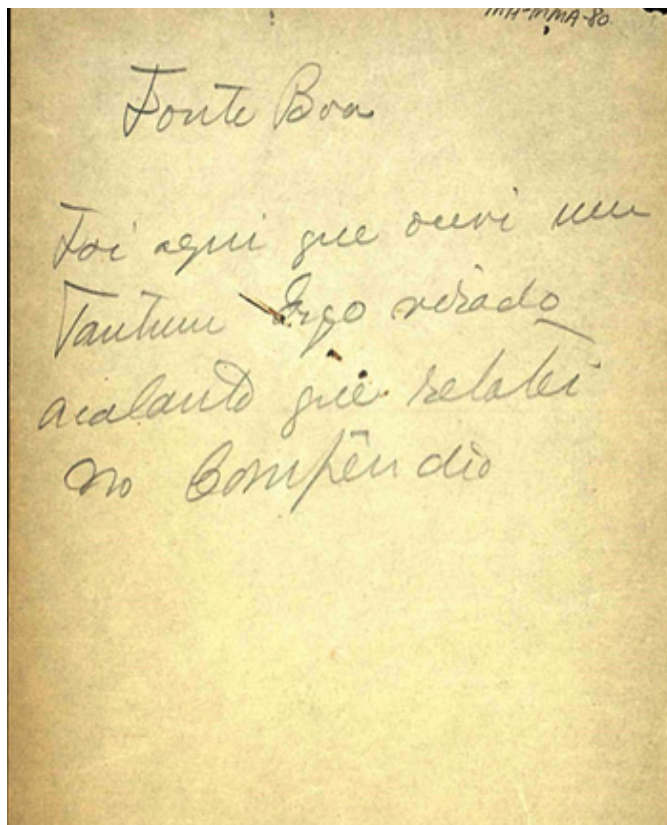 MA-MMA-80
Fonte Boa
Foi aqui que ouvi um
Tantum Ergo virado
acalanto que relatei
no Compêndio